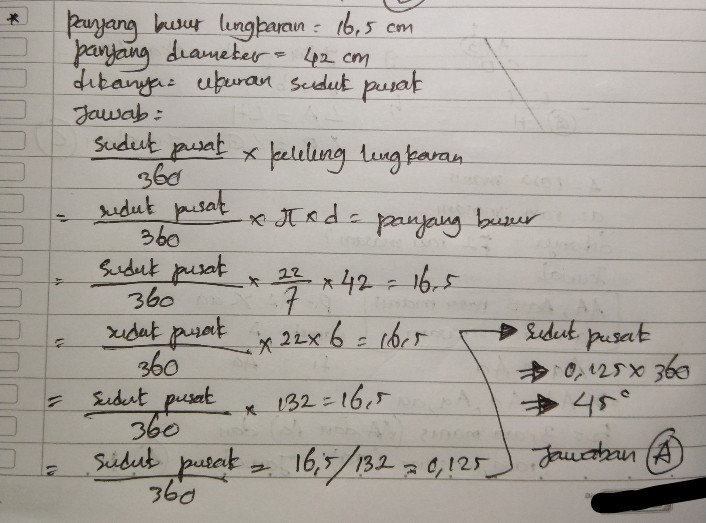 * panjang busur lingkaran = 16,5 cm
panjang diameter = 42 cm
ditanya = ukuran sudut pusat
Jawab =
sudut pusat/360 × keliling lingkaran
= sudut pusat/360 × π × d = panjang busur
= sudut pusat/360 × 22/7 × 42 = 16,5
= sudut pusat/360 × 22 × 6 = 16,5
= sudut pusat/360 × 132 = 16,5
= sudut pusat/360 = 16,5/132 = 0,125
→ sudut pusat
⇒ 0,125 × 360
⇒ 45°
Jawaban (A)